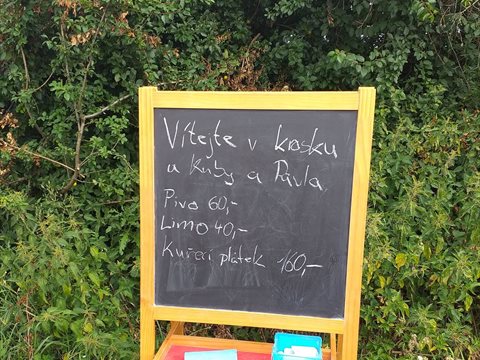 Vítejte v kiosku
u Kuby a Pavla.
Pivo 60,-
Limo 40,-
Kuřecí plátek 160,-